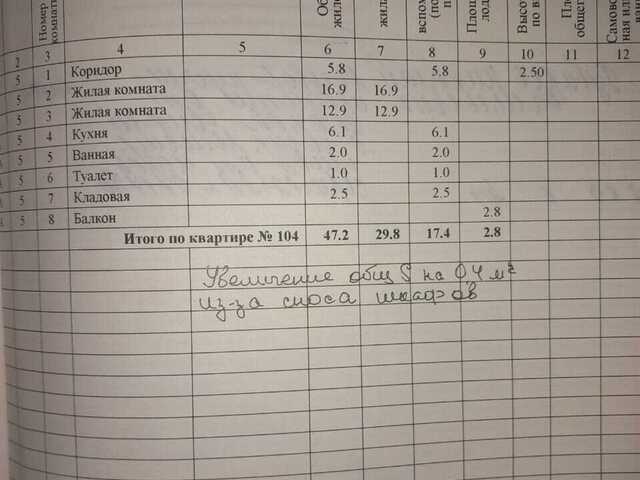 Номер
комнаты
2 3 4 5 6 7 8 9 10 11 12
5 1 Коридор 5.8 5.8 2.50
5 2 Жилая комната 16.9 16.9
5 3 Жилая комната 12.9 12.9
5 4 Кухня 6.1 6.1
5 5 Ванная 2.0 2.0
5 6 Туалет 1.0 1.0
5 7 Кладовая 2.5 2.5
5 8 Балкон 2.8
Итого по квартире № 104 47.2 29.8 17.4 2.8
Увеличение общ S на 0,4 м²
из-за сноса шкафов